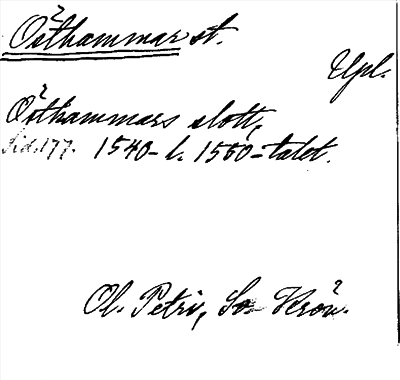 Östhammar st.
Upl.
Östhammars slott,
Sid. 177. 1540- l. 1550-talet.
Ol. Petri, Sv. Krön.